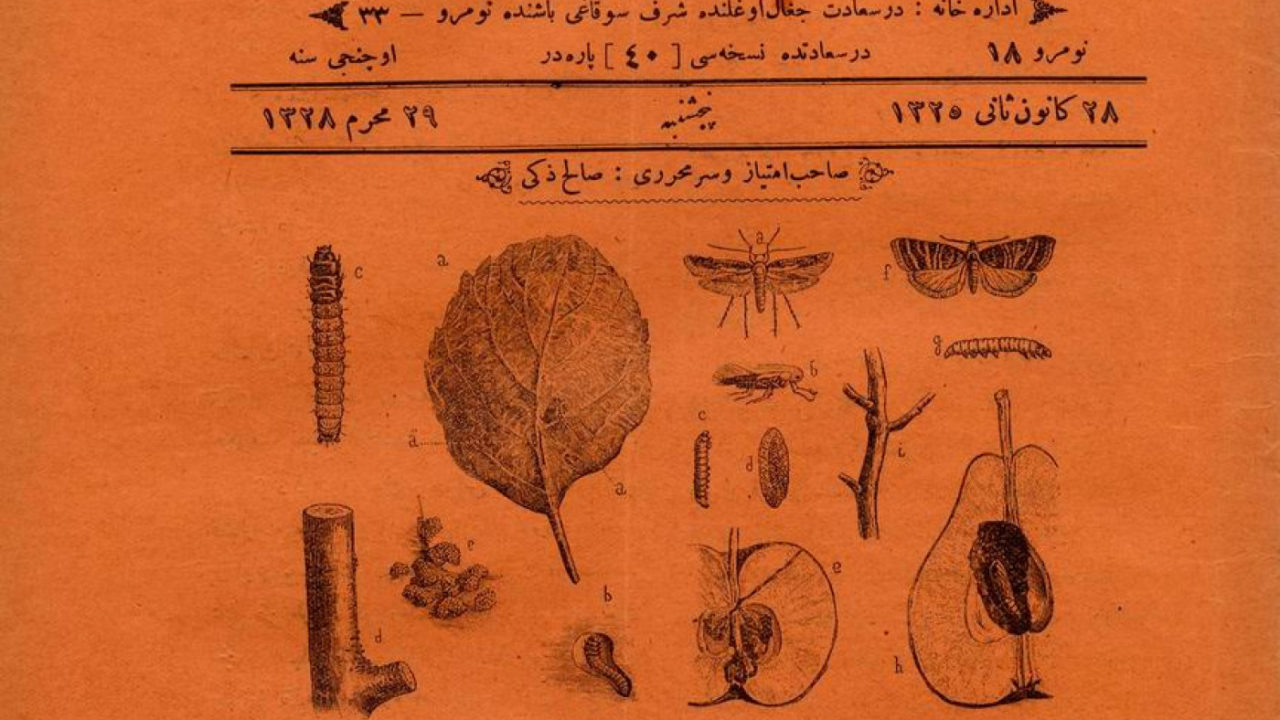 اداره خانه : درسعادت جغال‌اوغلنده شرف سوقاغی باشنده نومرو — ٣٣
نومرو ١٨ درسعادتده نسخه‌سی [ ٤٠ ] پاره‌در اوچنجی سنه
٢٨ كانون ثانی ١٣٢٥ پنجشنبه ٢٩ محرم ١٣٢٨
صاحب‌امتیاز وسرمحرری : صالح ذكی
a f
c a
g
b
c
a d i
a
e e
b
d h